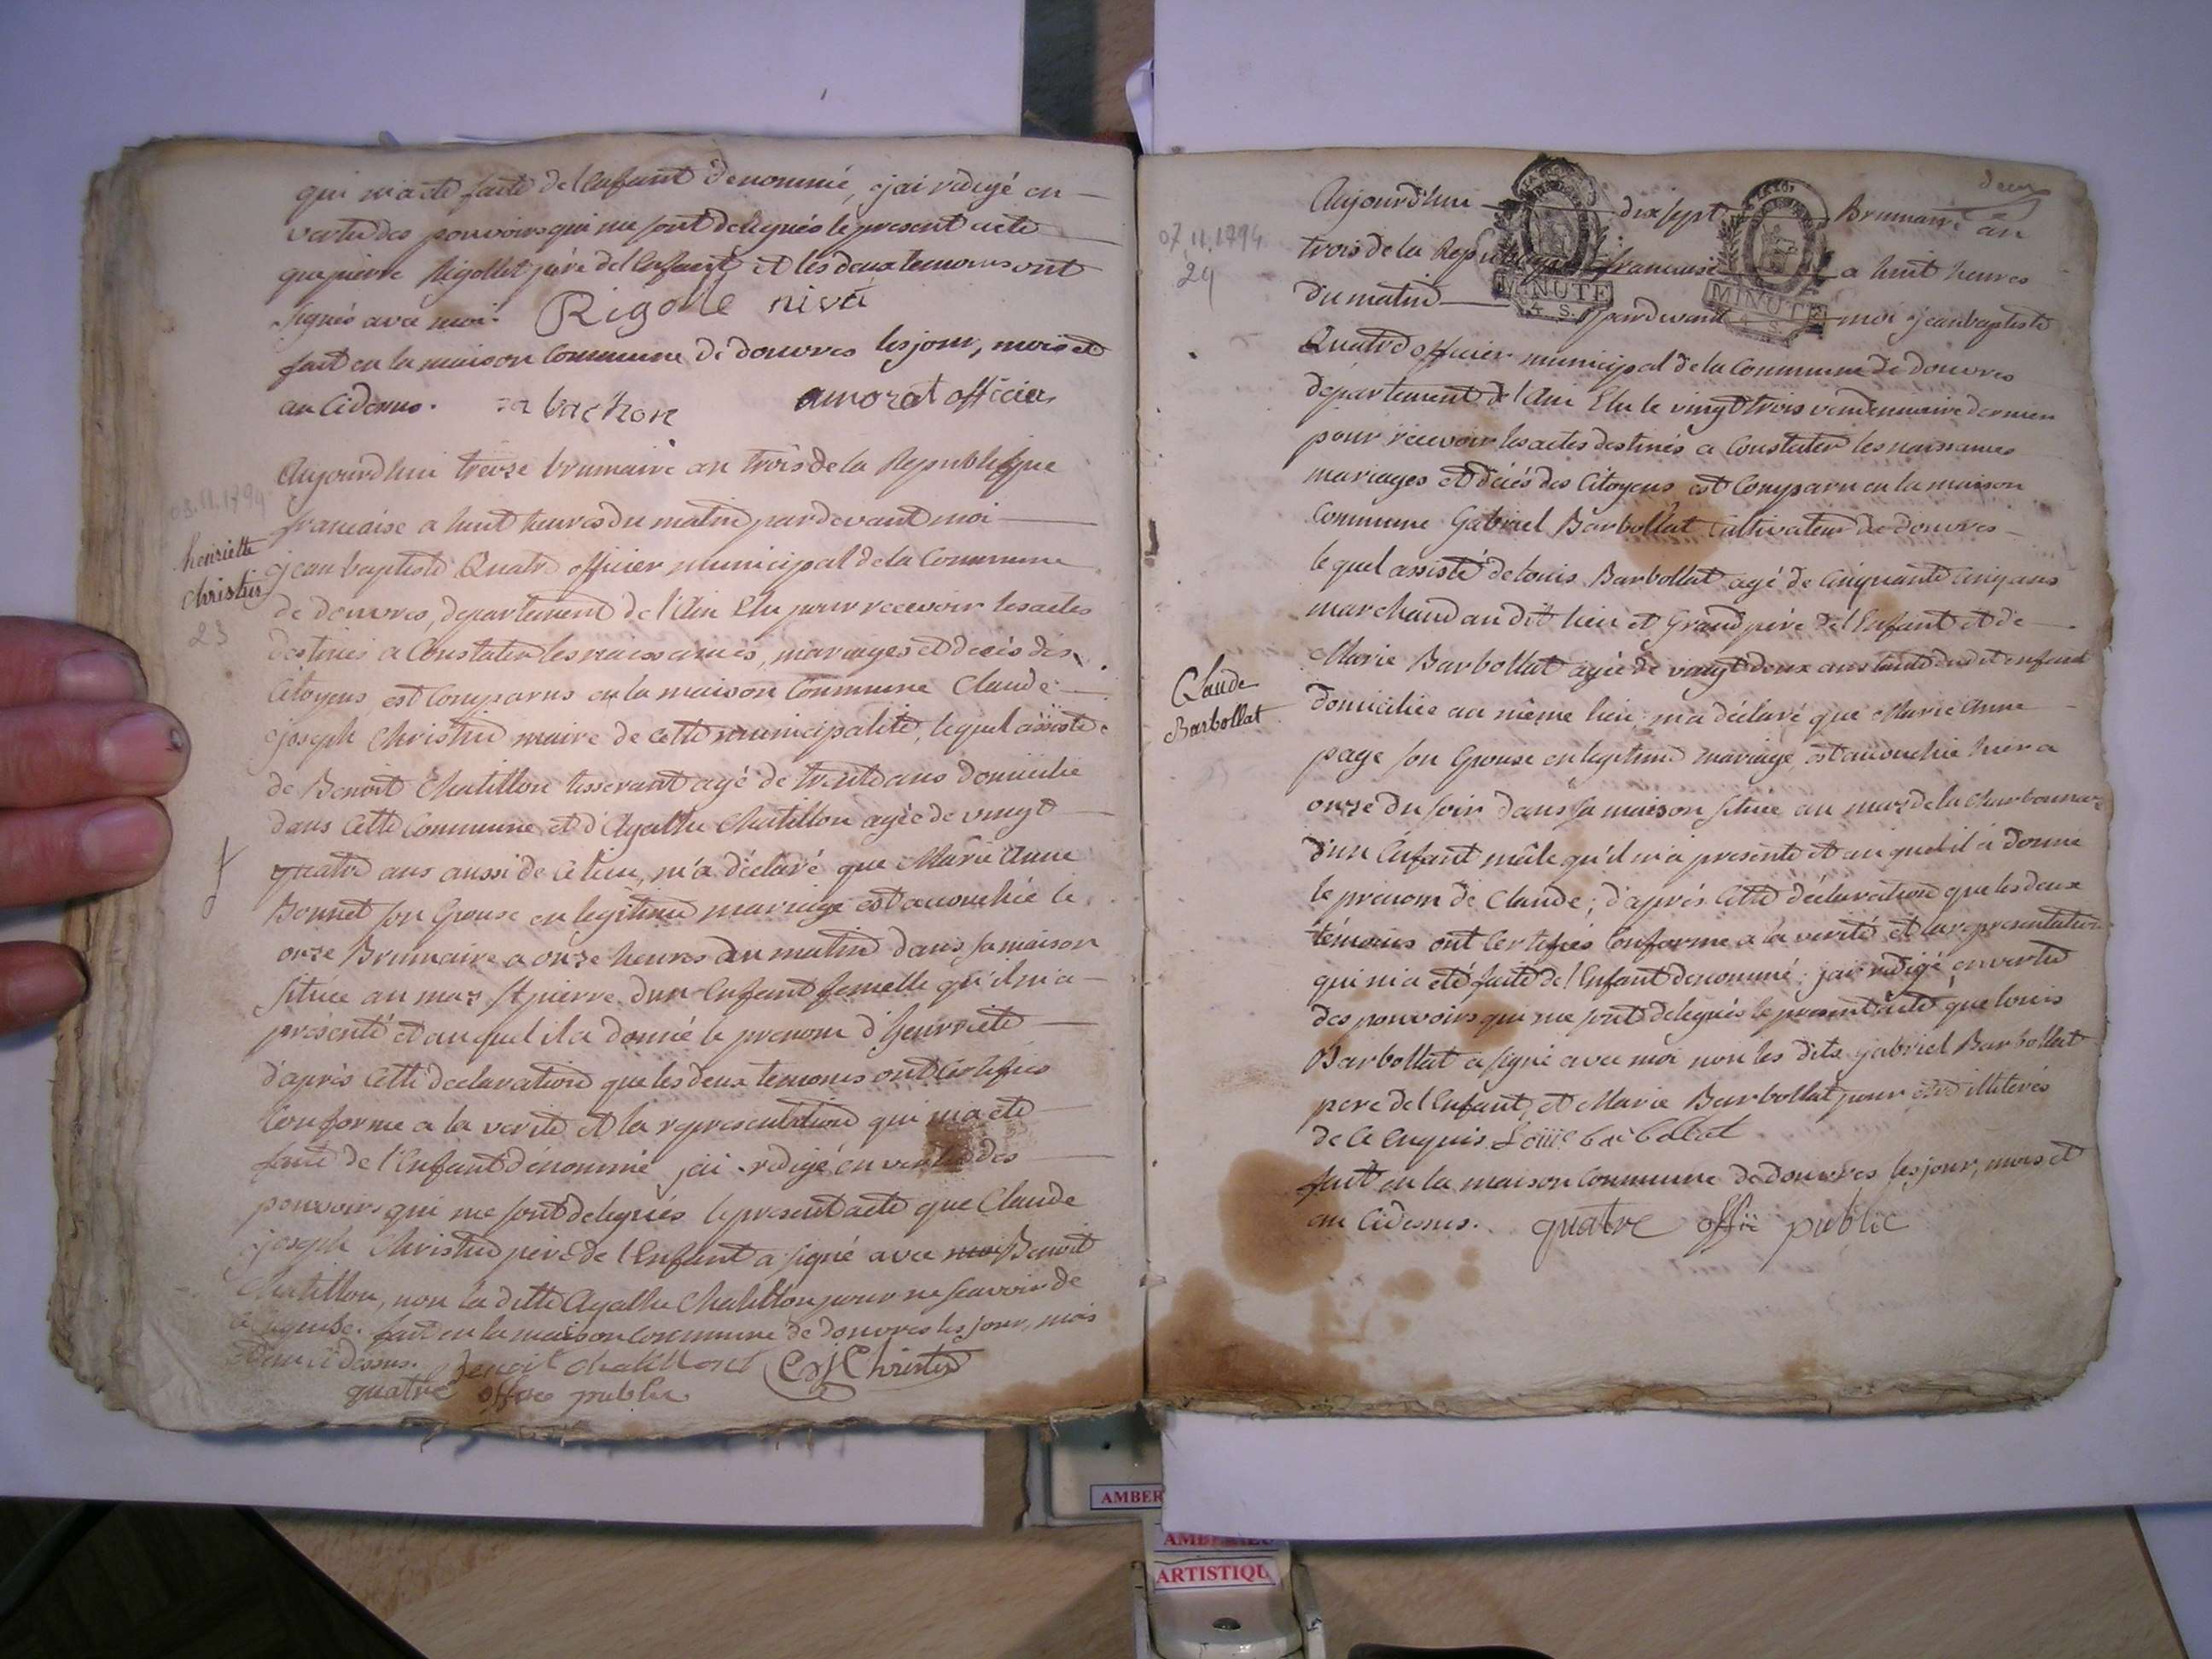 qui m'a été faite de l'enfant dénommé, j'ai redigé en
vertu des pouvoirs qui me sont delegués le present acte
que pierre Rigollet père de l'enfant et les deux temoins ont
signés avec moi. Rigolle nivet
fait en la maison commune de douvres les jour, mois et
an cidessus. amorat officier
Aujourdhui treize brumaire an trois de la Republique
francaise a huit heures du matin pardevant moi
jean baptiste Quatre officier municipal de la Commune
de douvres, departement de l'Ain Elu pour recevoir les actes
destinés a Constater les naissances, mariages et décès des
Citoyens, est Comparus en la maison Commune Claude
joseph Christin maire de cette municipalité, lequel assisté
de Benoit Chatillon tisserant agé de trente ans domicilié
dans cette Commune et d'Agathe Chatillon agée de vingt
quatre ans aussi de ce lieu, m'a déclaré que Marie Anne
Bonnet son Epouse en legitime mariage est accouchée le
onze Brumaire a onze heures du matin dans sa maison
située au mas st pierre d'un Enfant femelle qu'il m'a
présenté et auquel il a donné le prenom d'henriette
d'après cette declaration que les deux temoins ont certifiés
Conforme a la verité et la representation qui m'a été
faite de l'Enfant dénommé j'ai redigé en vertu des
pouvoirs qui me sont delegués le present acte que Claude
joseph Christin père de l'Enfant a signé avec moi Benoit
Chatillon, non la ditte Agathe Chatillon pour ne scavoir de
ce enquise. fait en la maison Commune de douvres les jour, mois
et an cidessus. Benoit chatillon CJ Christin
quatre office public
03.11.1794
henriette
christin
23
deux
Aujourd'hui dix sept Brumaire an
trois de la Republique francaise a huit heures
du matin pardevant moi jean baptiste
MINUTE
4 S.
MINUTE
4 S.
Quatre officier municipal de la Commune de douvres
département de l'Ain Elu le vingt trois vendemiaire dernier
pour recevoir les actes destinés a Constater les naissances
mariages et décès des Citoyens est Comparu en la maison
Commune Gabriel Barbollat Cultivateur de douvres
lequel assisté de Louis Barbollat agé de Cinquante Cinq ans
marchand au dit lieu et Grand père de l'Enfant et de
Marie Barbollat agée de vingt deux ans tante dudit enfant
domiciliée au même lieu, m'a déclaré que Marie Anne
page son Epouse en legitime mariage, est accouchée hier a
onze du soir dans sa maison située au mas de la charbonnaz
d'un Enfant mâle qu'il m'a presenté et auquel il a donné
le prenom de Claude; d'après cette déclaration que les deux
témoins ont Certifiés Conforme a la verité et la representation
qui m'a eté faite de l'Enfant denommé; j'ai redigé en vertu
des pouvoirs qui me sont delegués le present acte que Louis
Barbollat a signé avec moi non les dits gabriel Barbollat
pere de l'Enfant, et Marie Barbollat pour etre illiterés
de ce enquis Loüis barbollat
fait en la maison Commune de douvres les jour, mois et
an cidessus. quatre offic public
07.11.1794
24
Claude
Barbollat
AMBER
ARTISTIQU